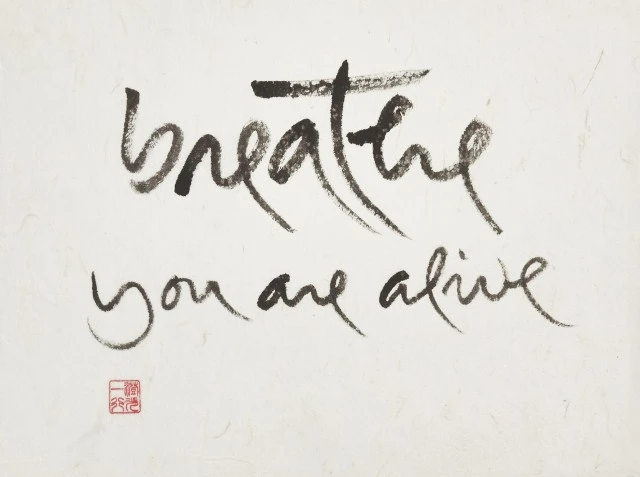 breathe
you are alive
一行